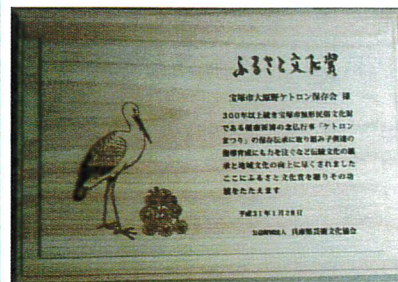 ふるさと文化賞
宝塚市大原野ケトロン保存会 様
300年以上続き宝塚市無形民俗文化財
である健康祈祷の念仏行事「ケトロン
まつり」の保存伝承に取り組み子供達の
指導育成にも力を注ぐなど伝統文化の継
承と地域文化の向上に尽くされました
ここにふるさと文化賞を贈りその功
績をたたえます
平成31年1月28日
公益財団法人 兵庫県芸術文化協会